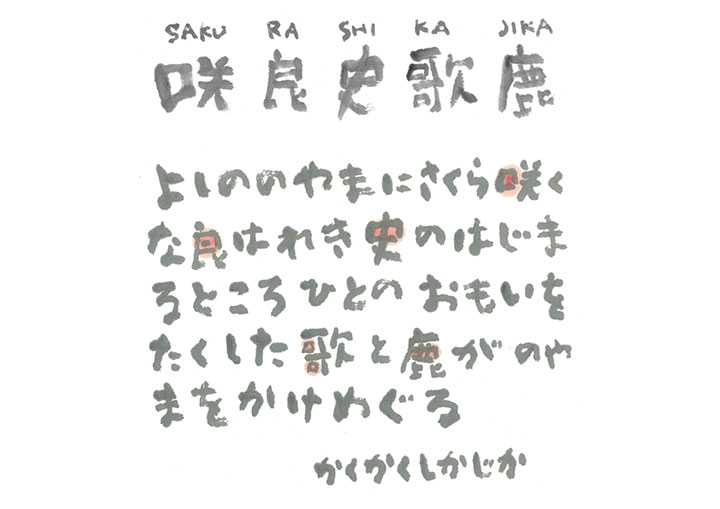 SAKU RA SHI KA JIKA
咲良史歌鹿
よしののやまにさくら咲く
な良はれき史のはじま
るところひとのおもいを
たくした歌と鹿がのや
まをかけめぐる
かくかくしかじか